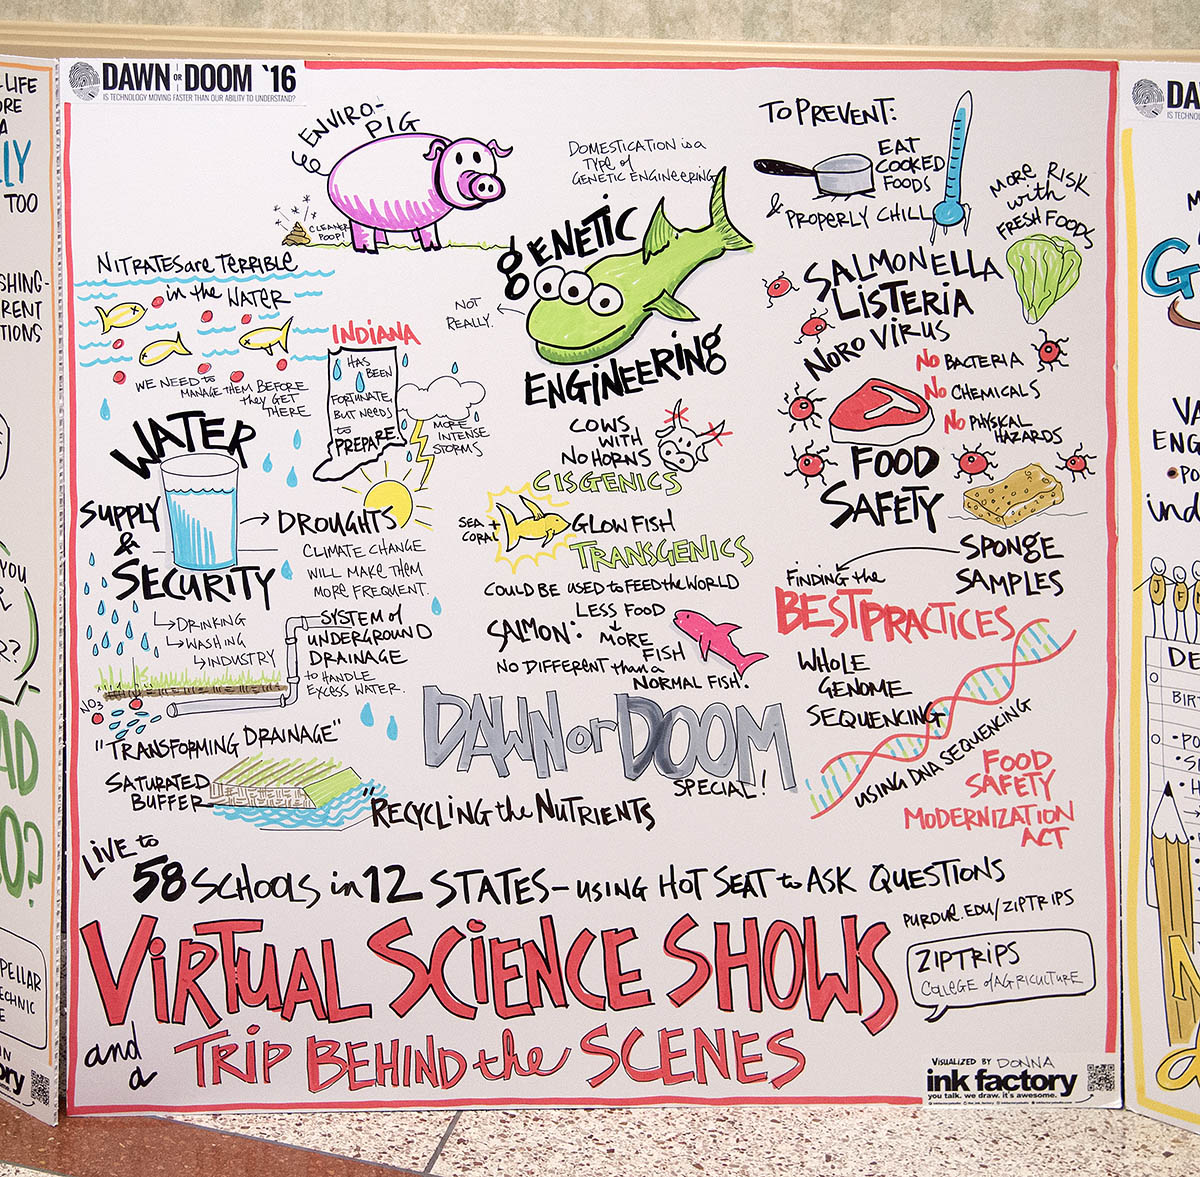 LIFE
ORE
A
LLY
TOO
SHING-
RENT
TIONS
YOU
R?
AD
O?
PELLAR
ECHNIC
E
IN
ory
DAWN OR DOOM '16
IS TECHNOLOGY MOVING FASTER THAN OUR ABILITY TO UNDERSTAND?
ENVIRO-
PIG
CLEANER
POOP!
NITRATES are TERRIBLE
in the WATER
WE NEED to
MANAGE THEM BEFORE
they GET
THERE
INDIANA
HAS
BEEN
FORTUNATE,
BUT NEEDS
to
PREPARE
MORE
INTENSE
STORMS
WATER
SUPPLY
&
SECURITY
DROUGHTS
CLIMATE CHANGE
WILL MAKE THEM
MORE FREQUENT.
DRINKING
WASHING
INDUSTRY
SYSTEM of
UNDERGROUND
DRAINAGE
to HANDLE
EXCESS WATER.
NO3
"TRANSFORMING DRAINAGE"
SATURATED
BUFFER
"RECYCLING the NUTRIENTS
DOMESTICATION is a
TYPE of
GENETIC ENGINEERING
GENETIC
NOT
REALLY.
ENGINEERING
COWS
WITH
NO HORNS
CISGENICS
SEA +
CORAL
GLOW FISH
TRANSGENICS
COULD BE USED to FEED the WORLD
LESS FOOD
SALMON:
MORE
FISH
NO DIFFERENT than a
NORMAL FISH.
DAWN or DOOM
SPECIAL!
TO PREVENT:
EAT
COOKED
FOODS
& PROPERLY CHILL
MORE RISK
with
FRESH FOODS
SALMONELLA
LISTERIA
NORO VIRUS
NO BACTERIA
NO CHEMICALS
NO PHYSICAL
HAZARDS
FOOD
SAFETY
SPONGE
SAMPLES
FINDING the
BEST PRACTICES
WHOLE
GENOME
SEQUENCING
USING DNA SEQUENCING
FOOD
SAFETY
MODERNIZATION
ACT
LIVE to
58 SCHOOLS in 12 STATES - USING HOT SEAT to ASK QUESTIONS
VIRTUAL SCIENCE SHOWS
and
a
TRIP BEHIND the SCENES
PURDUE.EDU/ZIPTRIPS
ZIPTRIPS
COLLEGE of AGRICULTURE
VISUALIZED BY DONNA
ink factory
you talk. we draw. it's awesome.
DA
IS TECHNOL
M
G
VA
ENG
•PO
ind
J F
DE
BIR
•PO
•S
•H
N
a